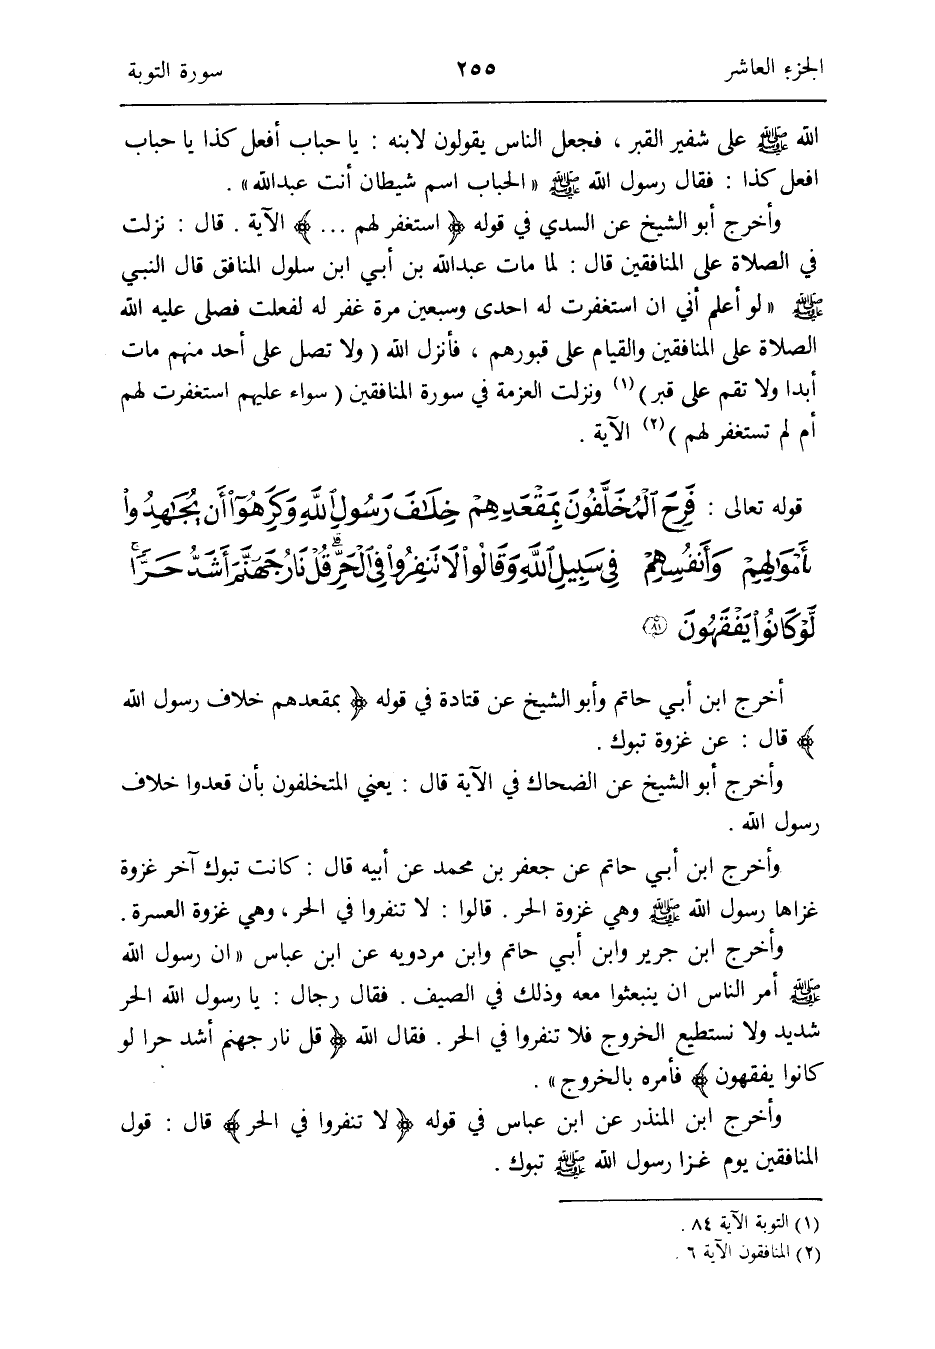 الجزء العاشر ٢٥٥ سورة التوبة
الله ﷺ على شفير القبر ، فجعل الناس يقولون لابنه : يا حباب أفعل كذا يا حباب
افعل كذا : فقال رسول الله ﷺ «الحباب اسم شيطان أنت عبدالله» .
وأخرج أبو الشيخ عن السدي في قوله ﴿ استغفر لهم ... ﴾ الآية . قال : نزلت
في الصلاة على المنافقين قال : لما مات عبدالله بن أبي ابن سلول المنافق قال النبي
ﷺ «لو أعلم أني ان استغفرت له احدى وسبعين مرة غفر له لفعلت فصلى عليه الله
الصلاة على المنافقين والقيام على قبورهم ، فأنزل الله ( ولا تصل على أحد منهم مات
أبدا ولا تقم على قبر )(١) ونزلت العزمة في سورة المنافقين ( سواء عليهم استغفرت لهم
أم لم تستغفر لهم )(٢) الآية .
قوله تعالى : فَرِحَ ٱلْمُخَلَّفُونَ بِمَقْعَدِهِمْ خِلَٰفَ رَسُولِ ٱللَّهِ وَكَرِهُوٓا۟ أَن يُجَٰهِدُوا۟
بِأَمْوَٰلِهِمْ وَأَنفُسِهِمْ فِى سَبِيلِ ٱللَّهِ وَقَالُوا۟ لَا تَنفِرُوا۟ فِى ٱلْحَرِّ ۗ قُلْ نَارُ جَهَنَّمَ أَشَدُّ حَرًّا ۚ
لَّوْ كَانُوا۟ يَفْقَهُونَ ٨١
أخرج ابن أبي حاتم وأبو الشيخ عن قتادة في قوله ﴿ بمقعدهم خلاف رسول الله
﴾ قال : عن غزوة تبوك .
وأخرج أبو الشيخ عن الضحاك في الآية قال : يعني المتخلفون بأن قعدوا خلاف
رسول الله .
وأخرج ابن أبي حاتم عن جعفر بن محمد عن أبيه قال : كانت تبوك آخر غزوة
غزاها رسول الله ﷺ وهي غزوة الحر . قالوا : لا تنفروا في الحر ، وهي غزوة العسرة .
وأخرج ابن جرير وابن أبي حاتم وابن مردويه عن ابن عباس «ان رسول الله
ﷺ أمر الناس ان ينبعثوا معه وذلك في الصيف . فقال رجال : يا رسول الله الحر
شديد ولا نستطيع الخروج فلا تنفروا في الحر . فقال الله ﴿ قل نار جهنم أشد حرا لو
كانوا يفقهون ﴾ فأمره بالخروج» .
وأخرج ابن المنذر عن ابن عباس في قوله ﴿ لا تنفروا في الحر ﴾ قال : قول
المنافقين يوم غزا رسول الله ﷺ تبوك .
(١) التوبة الآية ٨٤ .
(٢) المنافقون الآية ٦ .